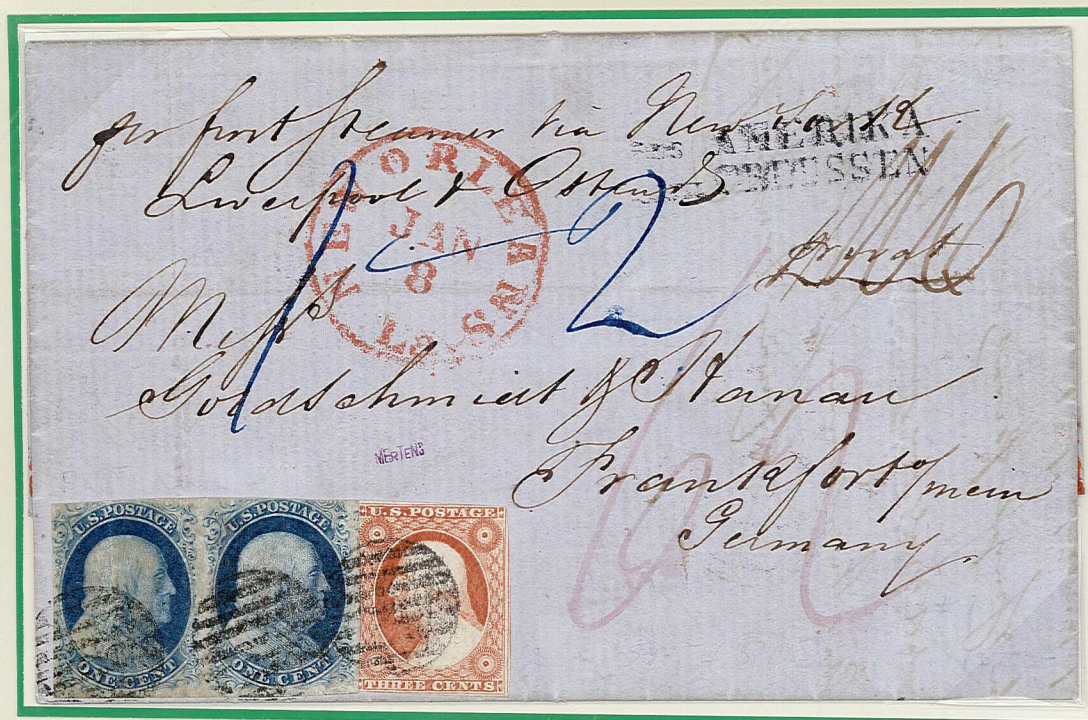 per first steamer via New York
Liverpool & Ostend
AUS AMERIKA
PREUSSEN
NEW ORLEANS La
JAN
8
1 2
Mess
Goldschmidt & Hanau
Frankfort o/ mein
Germany
MERTENS
U.S. POSTAGE
ONE CENT
U.S. POSTAGE
ONE CENT
U.S. POSTAGE
THREE CENTS